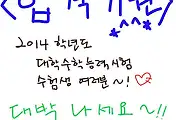 <합격기원>
*^^*
2014 학년도
대학수학능력시험
수험생 여러분~!♡
대박 나세요~!!